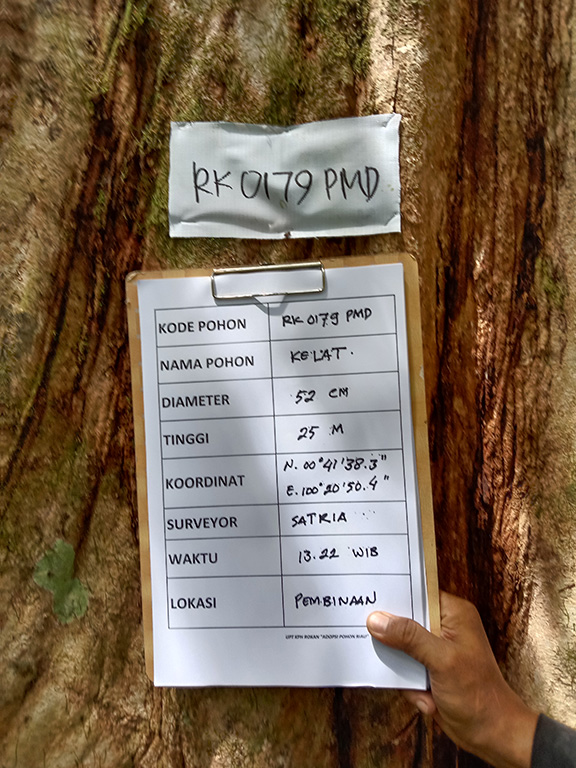 RK 0179 PMD
KODE POHON RK 0179 PMD
NAMA POHON KELAT.
DIAMETER 52 CM
TINGGI 25 M
KOORDINAT N. 00°41'38.3"
E. 100°20'50.4"
SURVEYOR SATRIA
WAKTU 13.22 WIB
LOKASI PEMBINAAN
UPT KPH ROKAN "ADOPSI POHON RIAU"